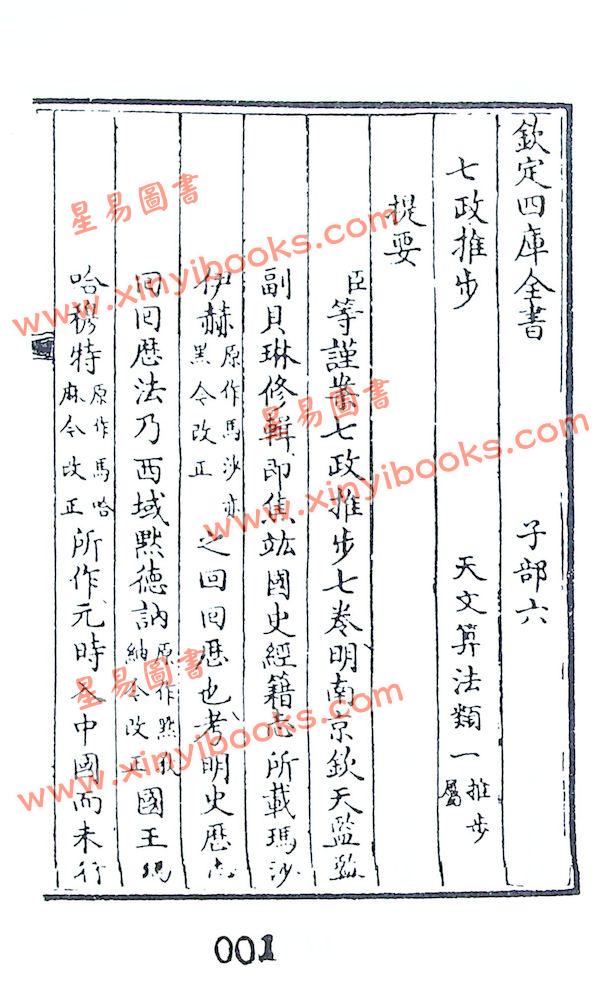 欽定四庫全書　子部六
七政推步　天文算法類一推步屬
提要
臣等謹案七政推步七卷明南京欽天監監
副貝琳修輯即焦竑國史經籍志所載瑪沙
伊赫原作馬沙亦黑今改正之回回厯也考明史厯志
回回厯法乃西域默德訥原作默狄納今改正國王瑪
哈穆特原作馬哈麻今改正所作元時入中國而未行
星易圖書
www.xinyibooks.com
星易圖書
www.xinyibooks.com
星易圖書
www.xinyibooks.com
001